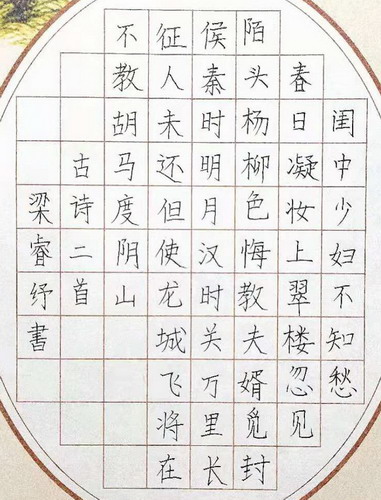 闺中少妇不知愁
春日凝妆上翠楼忽见
陌头杨柳色悔教夫婿觅封
侯秦时明月汉时关万里长
征人未还但使龙城飞将在
不教胡马度阴山
古诗二首
梁睿纾书